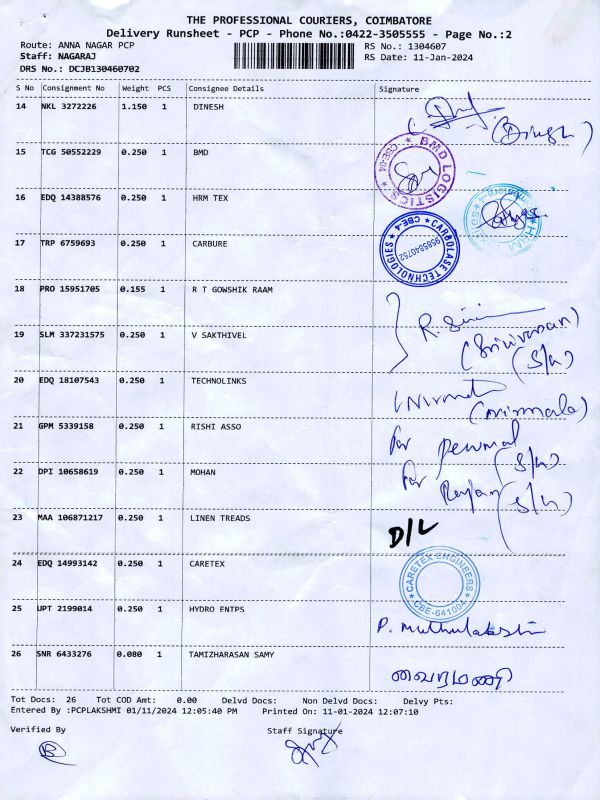 THE PROFESSIONAL COURIERS, COIMBATORE
Delivery Runsheet - PCP - Phone No.:0422-3505555 - Page No.:2
Route: ANNA NAGAR PCP RS No.: 1304607
Staff: NAGARAJ RS Date: 11-Jan-2024
DRS No.: DCJB130460702
S No Consignment No Weight PCS Consignee Details Signature
14 NKL 3272226 1.150 1 DINESH
(Dinesh)
15 TCG 50552229 0.250 1 BMD
BMD LOGISTICS CBE-04
16 EDQ 14388576 0.250 1 HRM TEX
HRM
17 TRP 6759693 0.250 1 CARBURE
CARBOLASE TECHNOLOGIES CBE-4
9585840752
18 PRO 15951705 0.155 1 R T GOWSHIK RAAM
R.
19 SLM 337231575 0.250 1 V SAKTHIVEL
(Srinivasan)
(S/w)
20 EDQ 18107543 0.250 1 TECHNOLINKS
(Nirmala)
21 GPM 5339158 0.250 1 RISHI ASSO
For Perumal (S/w)
22 DPI 10658619 0.250 1 MOHAN
For Rajan (S/w)
23 MAA 106871217 0.250 1 LINEN TREADS
D/L
24 EDQ 14993142 0.250 1 CARETEX
CARETEX ENGINEERS CBE-641004
25 UPT 2199014 0.250 1 HYDRO ENTPS
P. Muthulakshmi
26 SNR 6433276 0.080 1 TAMIZHARASAN SAMY
வைரமணி
Tot Docs: 26 Tot COD Amt: 0.00 Delvd Docs: Non Delvd Docs: Delvy Pts:
Entered By :PCPLAKSHMI 01/11/2024 12:05:40 PM Printed On: 11-01-2024 12:07:10
Verified By Staff Signature